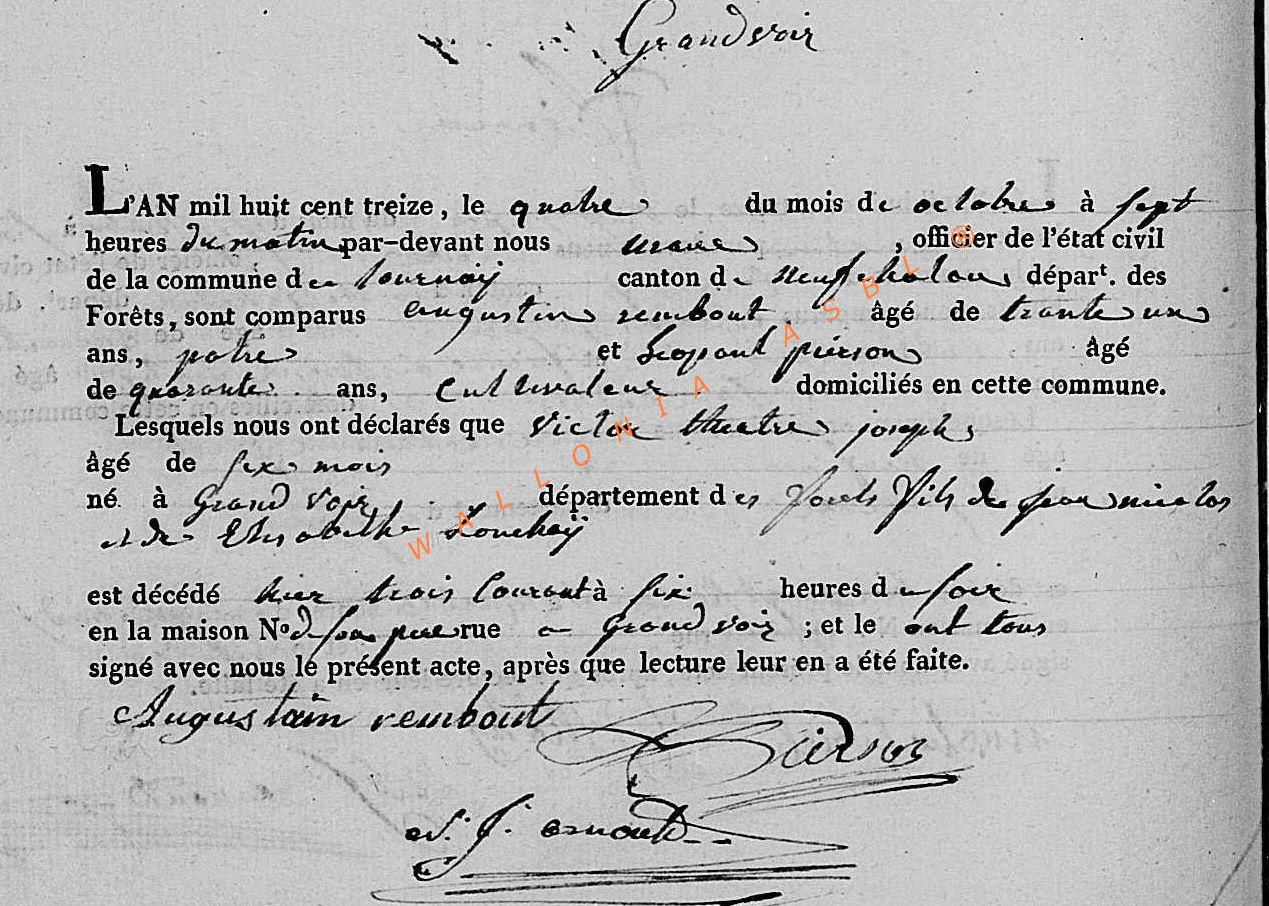 Grandvoir
L'AN mil huit cent treize, le quatre du mois de octobre à sept
heures du matin par-devant nous maire, officier de l'état civil
de la commune de tournay canton de neufchatau départ. des
Forêts, sont comparus augustin rembout âgé de trante un
ans, patre et Leopont pierson âgé
de quarante ans, Cultivateur domiciliés en cette commune.
Lesquels nous ont déclarés que victor joseph
âgé de six mois
né à Grand voir département des forets fils de jean nicolas
et de Elisabethe
est décédé hier trois Courant à six heures du soir
en la maison No de son pere rue a Grand voir ; et le ont tous
signé avec nous le présent acte, après que lecture leur en a été faite.
Augustain rembout
Pierson
N. J. arnould
WALLONIA ASBL ®